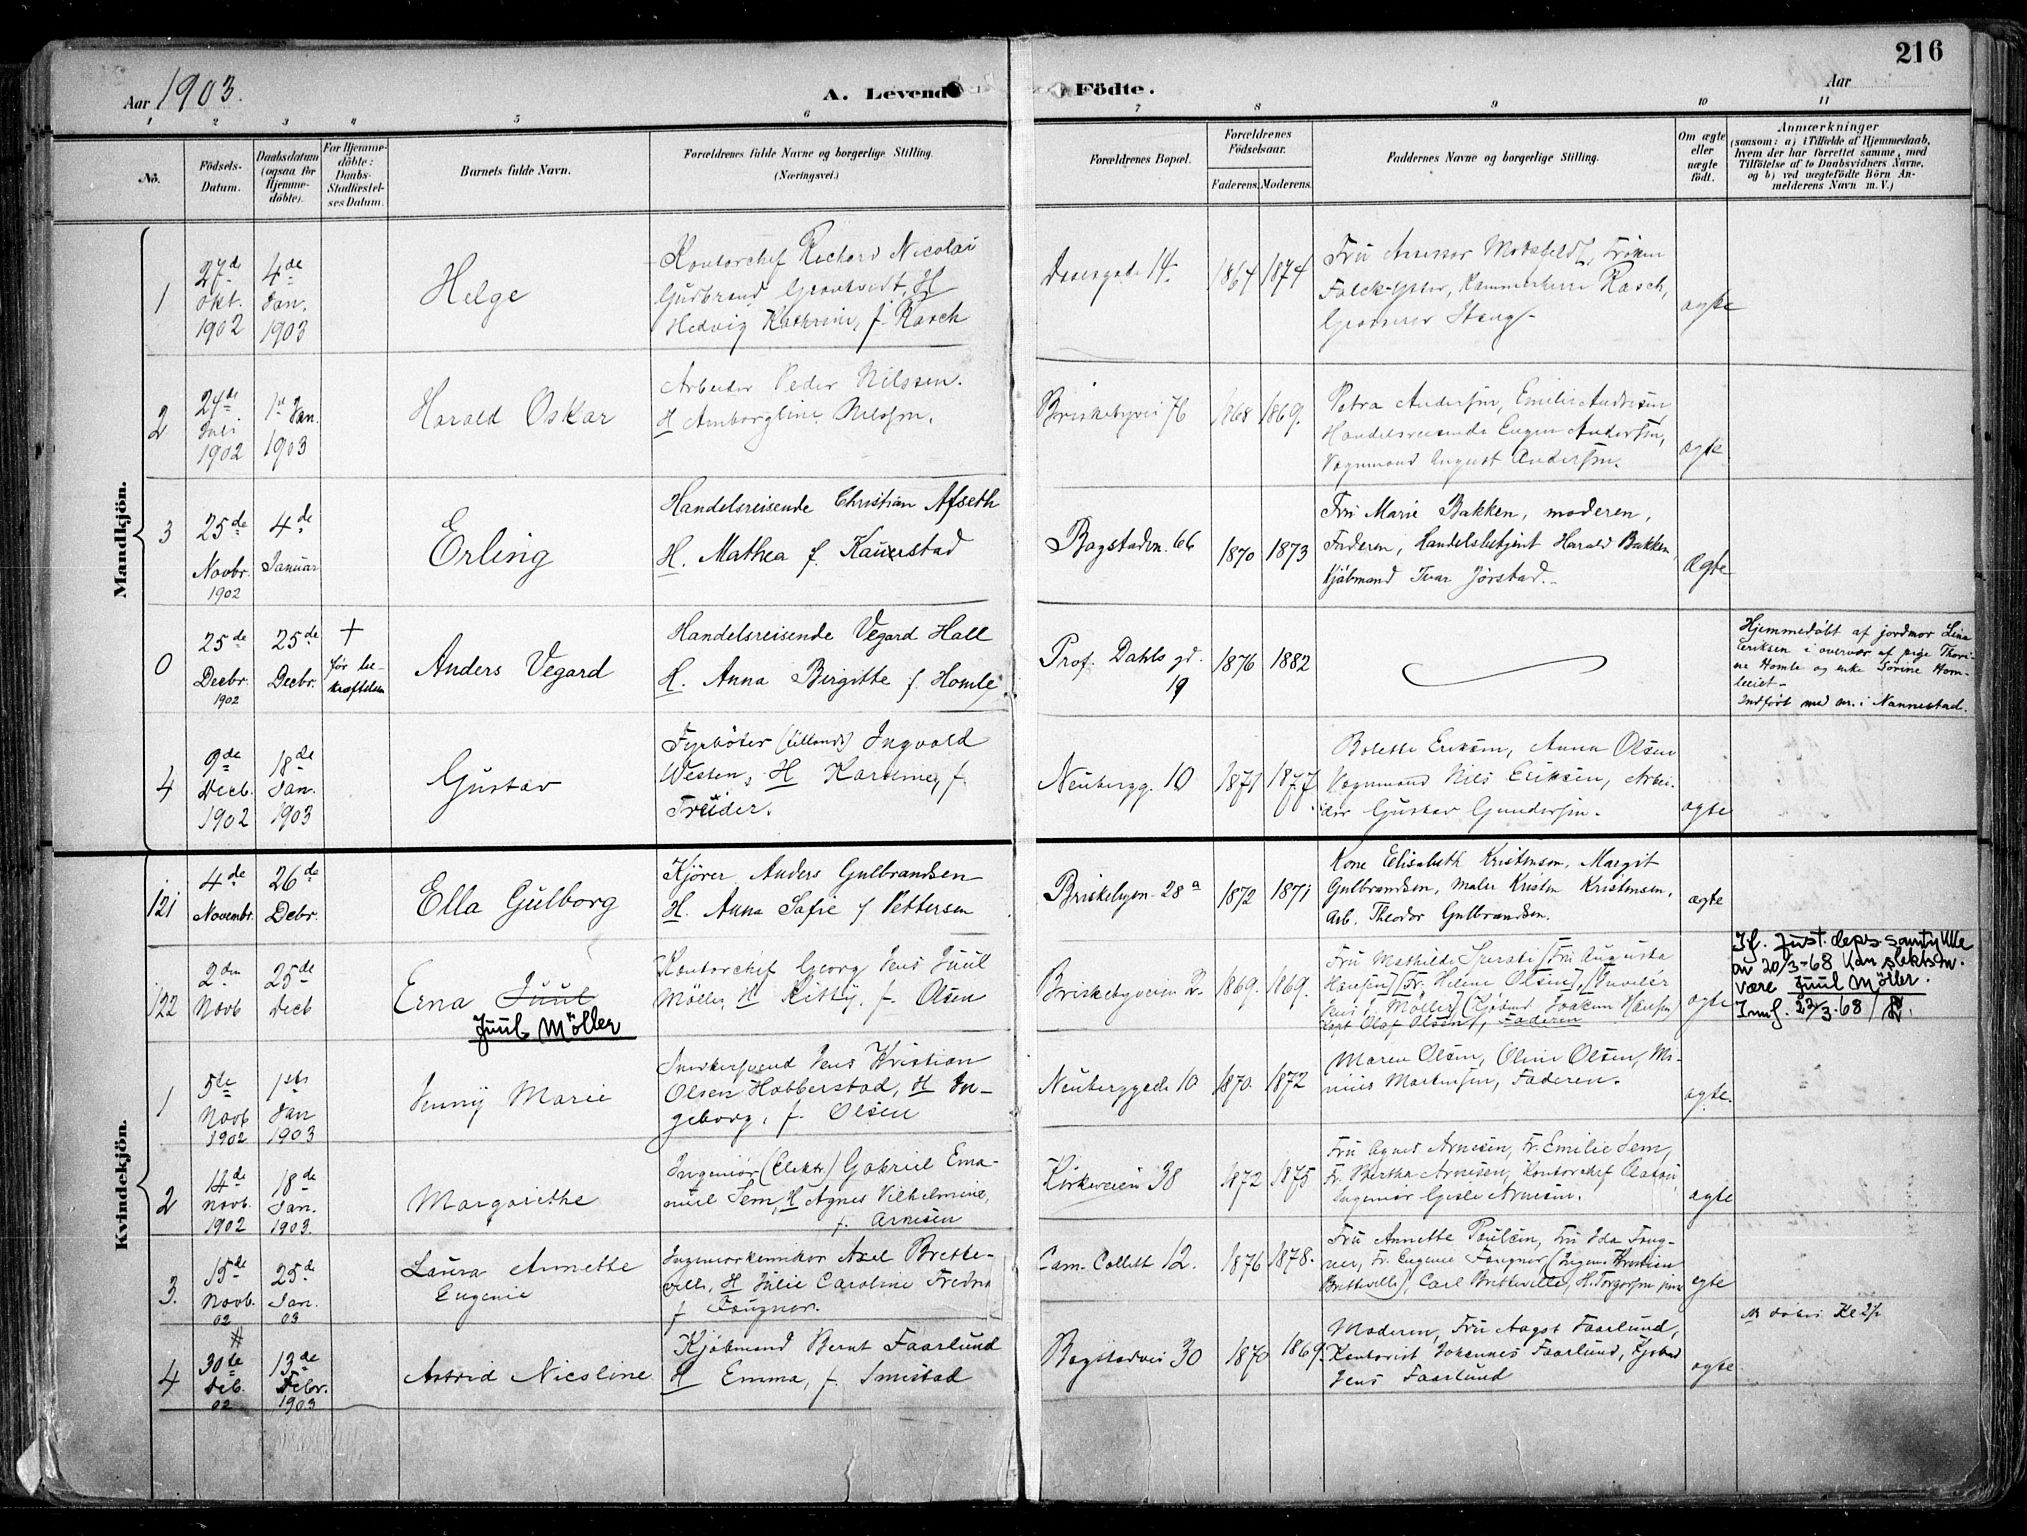 216
Aar 1903.
A. Levende Födte.
Aar
1 2 3 4 5 6 7 8 9 10 11
No.
Födsels-Datum.
Daabsdatum (ogsaa for Hjemmedöbte).
For Hjemmedöbte: Daabs-Stadfæstelses Datum.
Barnets fulde Navn.
Forældrenes fulde Navne og borgerlige Stilling.
(Næringsvei.)
Forældrenes Bopæl.
Forældrenes Födselsaar.
Faderens. Moderens.
Faddernes Navne og borgerlige Stilling.
Om ægte eller uægte födt.
Anmærkninger
(saasom: a) i Tilfælde af Hjemmedaab,
hvem der har forrettet samme, med
Tilföielse af to Daabsvidners Navne,
og b) ved uægtefödte Börn An-
melderens Navn m. V.)
Mandkjön.
1
27de Okt. 1902
4de Jan. 1903
Helge
Kontorchef Richard Nicolai
Gudbrand H
Hedvig Kathrine, f. Rasch
14.
1864 1874
Fru Assessor Motzfeldt, Frøken
Kammerherre Rasch,
ægte
2
24de Juli 1902
1st Jan. 1903
Harald Oskar
Arbeider Peder Nilssen.
H Amborgline Nilssen.
Briskebyvei 76
1868 1869.
Petra Andersen, Emilie Andersen,
Handelsreisende Eugen Andersen,
Vognmand August Andersen.
ægte
3
25de Novbr. 1902
4de Januar
Erling
Handelsreisende Christian Afseth
H. Mathea f. Kauerstad
Bogstadvn. 66
1870 1873
Fru Marie Bakken, moderen,
Faderen, Handelsbetjent Harald Bakken,
Kjöbmand Ivar Jörstad.
Ægte
0
25de Decbr. 1902
25de Decbr.
+ før be-
kræftelsen
Anders Vegard
Handelsreisende Vegard Hall
H. Anna Birgitte f. Homle
Prof. Dahls gd. 19
1876 1882
Hjemmedöbt af jordmor Lina
Eriksen i overvær af pige Thori-
ne Homle og enke Sörine Hom-
Indført med nr. i Nannestad.
4
9de Decb. 1902
18de Jan. 1903
Gustav
Fyrböter (Utlands) Ingvald
Westen, H f.
Treider.
Neubergg. 10
1871 1877.
Bolette Eriksen, Anna Olsen
Vognmand Nils Eriksen, Arbei-
der Gustav Gundersen.
ægte
Kvindekjön.
121
4de Novembr.
26de Debr.
Ella Gulborg
Kjører Anders Gulbrandsen
H. Anna Sofie f Pettersen
Briskebyen 28a
1872 1871
Kone Elisabeth Kristensen, Margit
Gulbrandsen, maler Kristen Kristensen,
Arb. Theodor Gulbrandsen.
ægte
122
2den Novb
25de Decb
Erna Juul
Juul Möller
Kontorchef Georg Jens Juul
Möller, H Kitty, f. Olsen
Briskebyveien 2.
1869. 1869.
Fru Mathilde Fru Augusta
Hansen Fr. Helene Olsen,
Jens J. Möller Kjøbmd Joakim Hansen
Olaf Olsen, Faderen
ægte
If. Just. deps samtykke
av 20/3-68 kan slektsn.
være Juul Möller.
Innf. 22/3.68
1
5te Novb 1902
1ste Jan 1903
Jenny Marie
Snekkersvend Jens Kristian
Olsen Habberstad, H In-
geborg, f. Olsen
Neuberggade 10
1870. 1872
Maren Olsen, Oline Olsen,
Martinsen, Faderen.
ægte.
2
14de Novb. 1902
18de Jan. 1903.
Margarethe
Ingeniør (Elektr.) Gabriel Ema-
nuel Sem, H Agnes Vilhelmine,
f. Arnesen
Kirkeveien 38
1872 1875
Fru Agnes Arnesen, Fr. Emilie Sem,
Fr. Bertha Arnesen, Kontorchef
Ingeniør Arnesen.
ægte
3.
15de Novb. 02
25de Jan. 03
Laura Annette
Eugenie
Axel Brette-
ville, H Julie Caroline
f. Fougner.
Cam. Collett 12.
1876 1878.
Fru Annette Paulsen, Fru Ida Foug-
ner, Fr. Eugenie Fougner, Ingen. Kristian
Bretteville, Carl Bretteville, H. Torgersen junr
ægte
4
#
30te Deb. 02
13de Febr. 1903
Astrid Nicoline
Kjøbmand Bernt Faarlund
H Emma, f. Smestad
Bogstadvei 30
1870 1869.
Moderen, Fru Faarlund,
Kontorist Johannes Faarlund,
Jens Faarlund
ægte